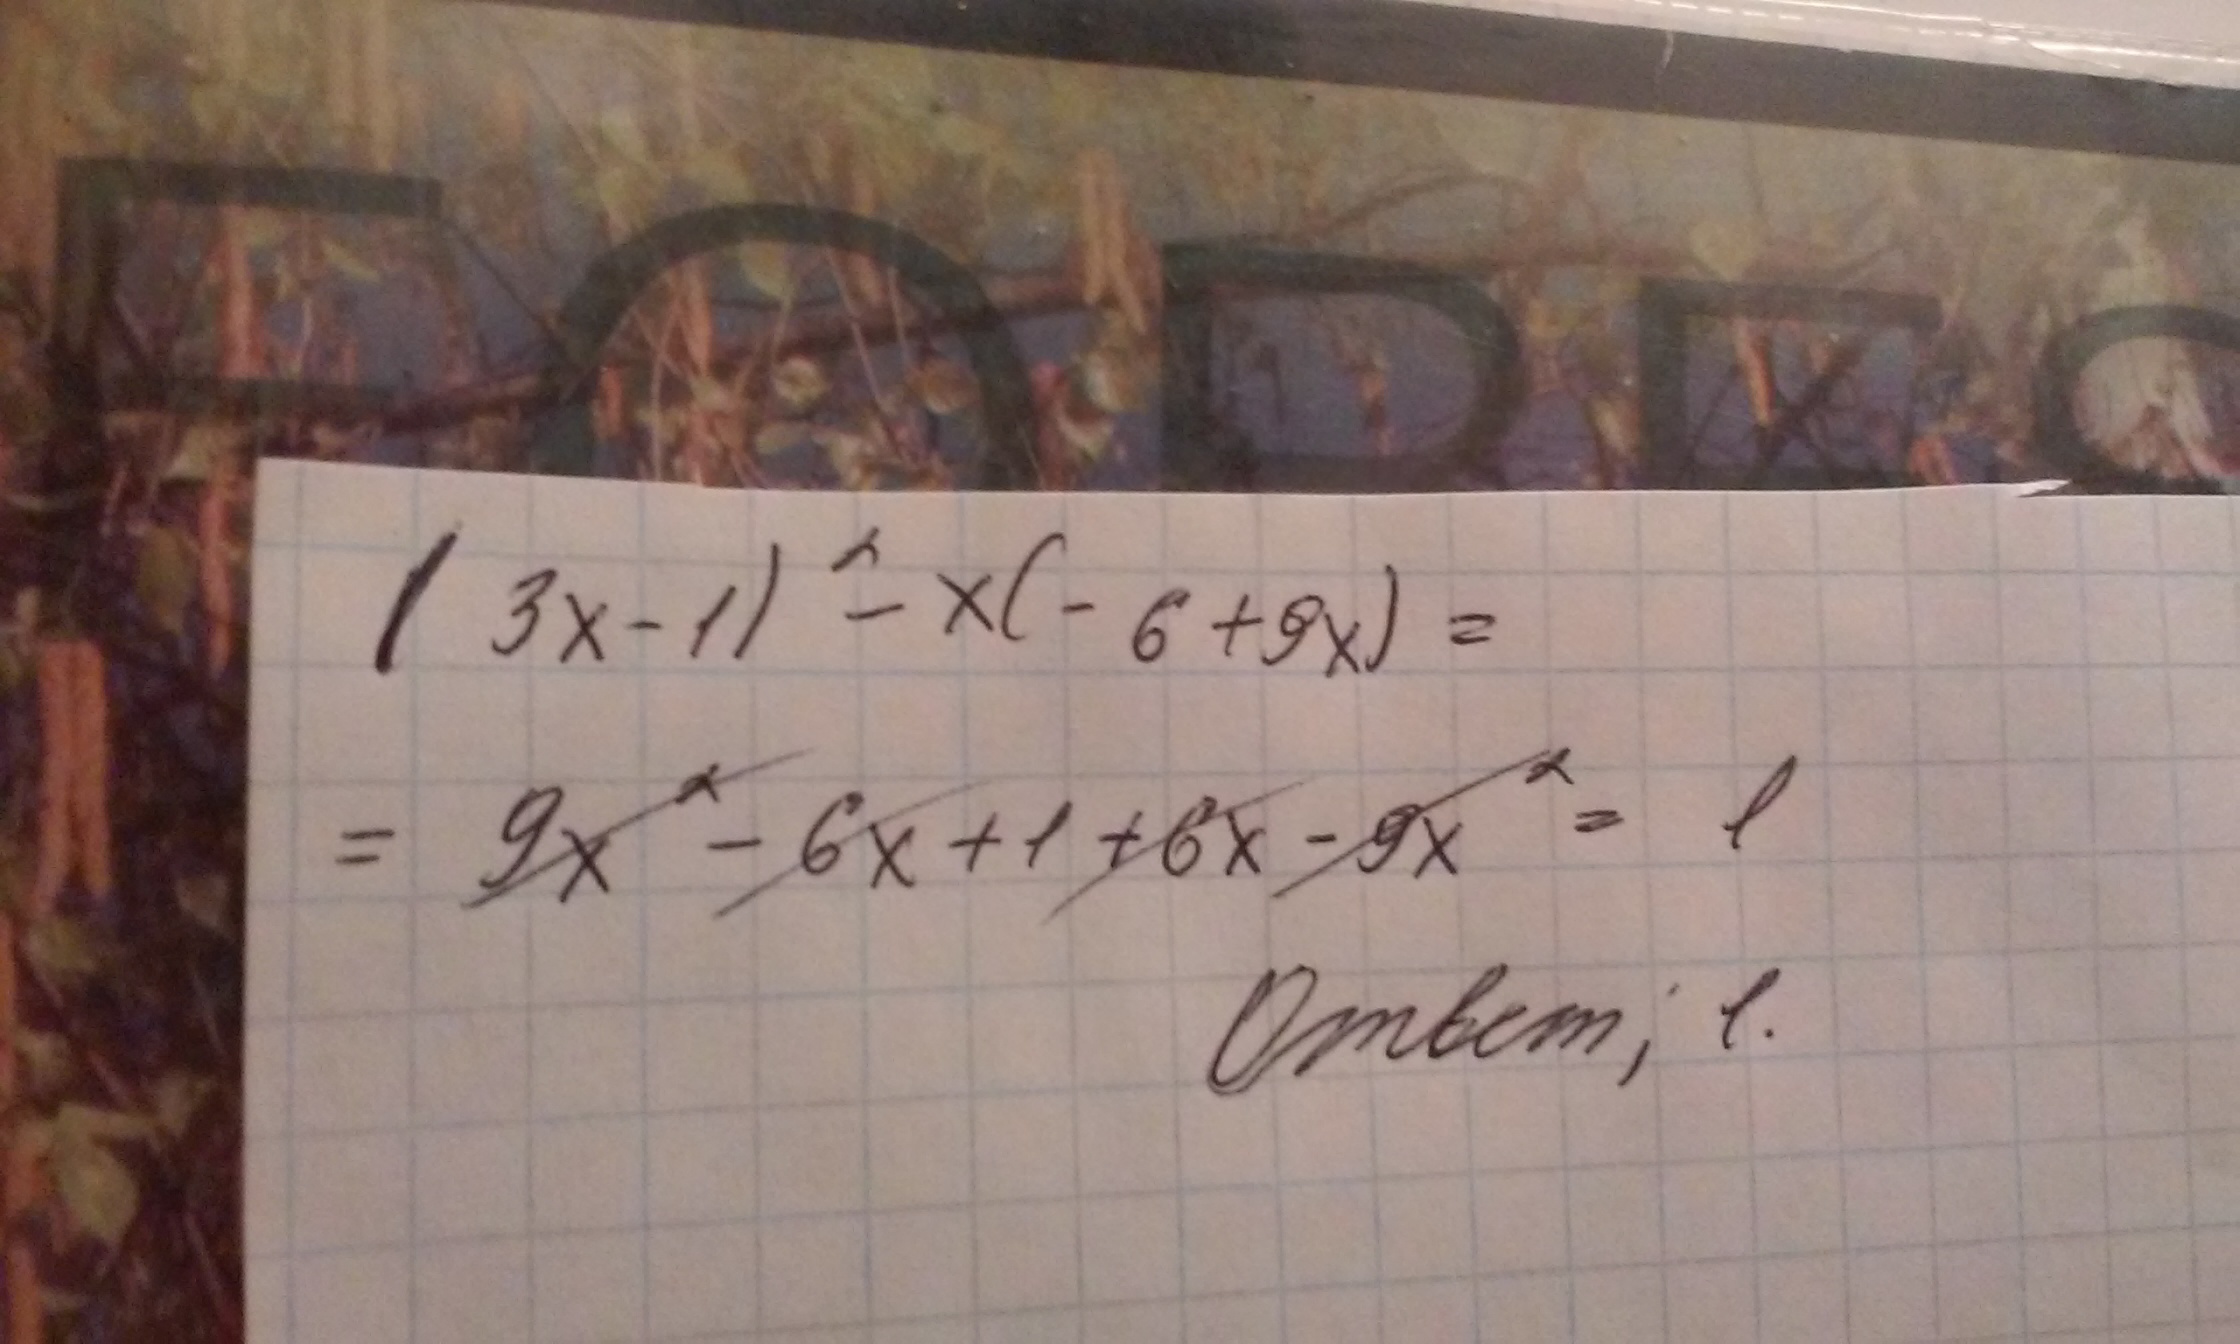 (3x-1)² - x(-6+9x) =
= 9x² - 6x + 1 + 6x - 9x² = 1
Ответ; 1.